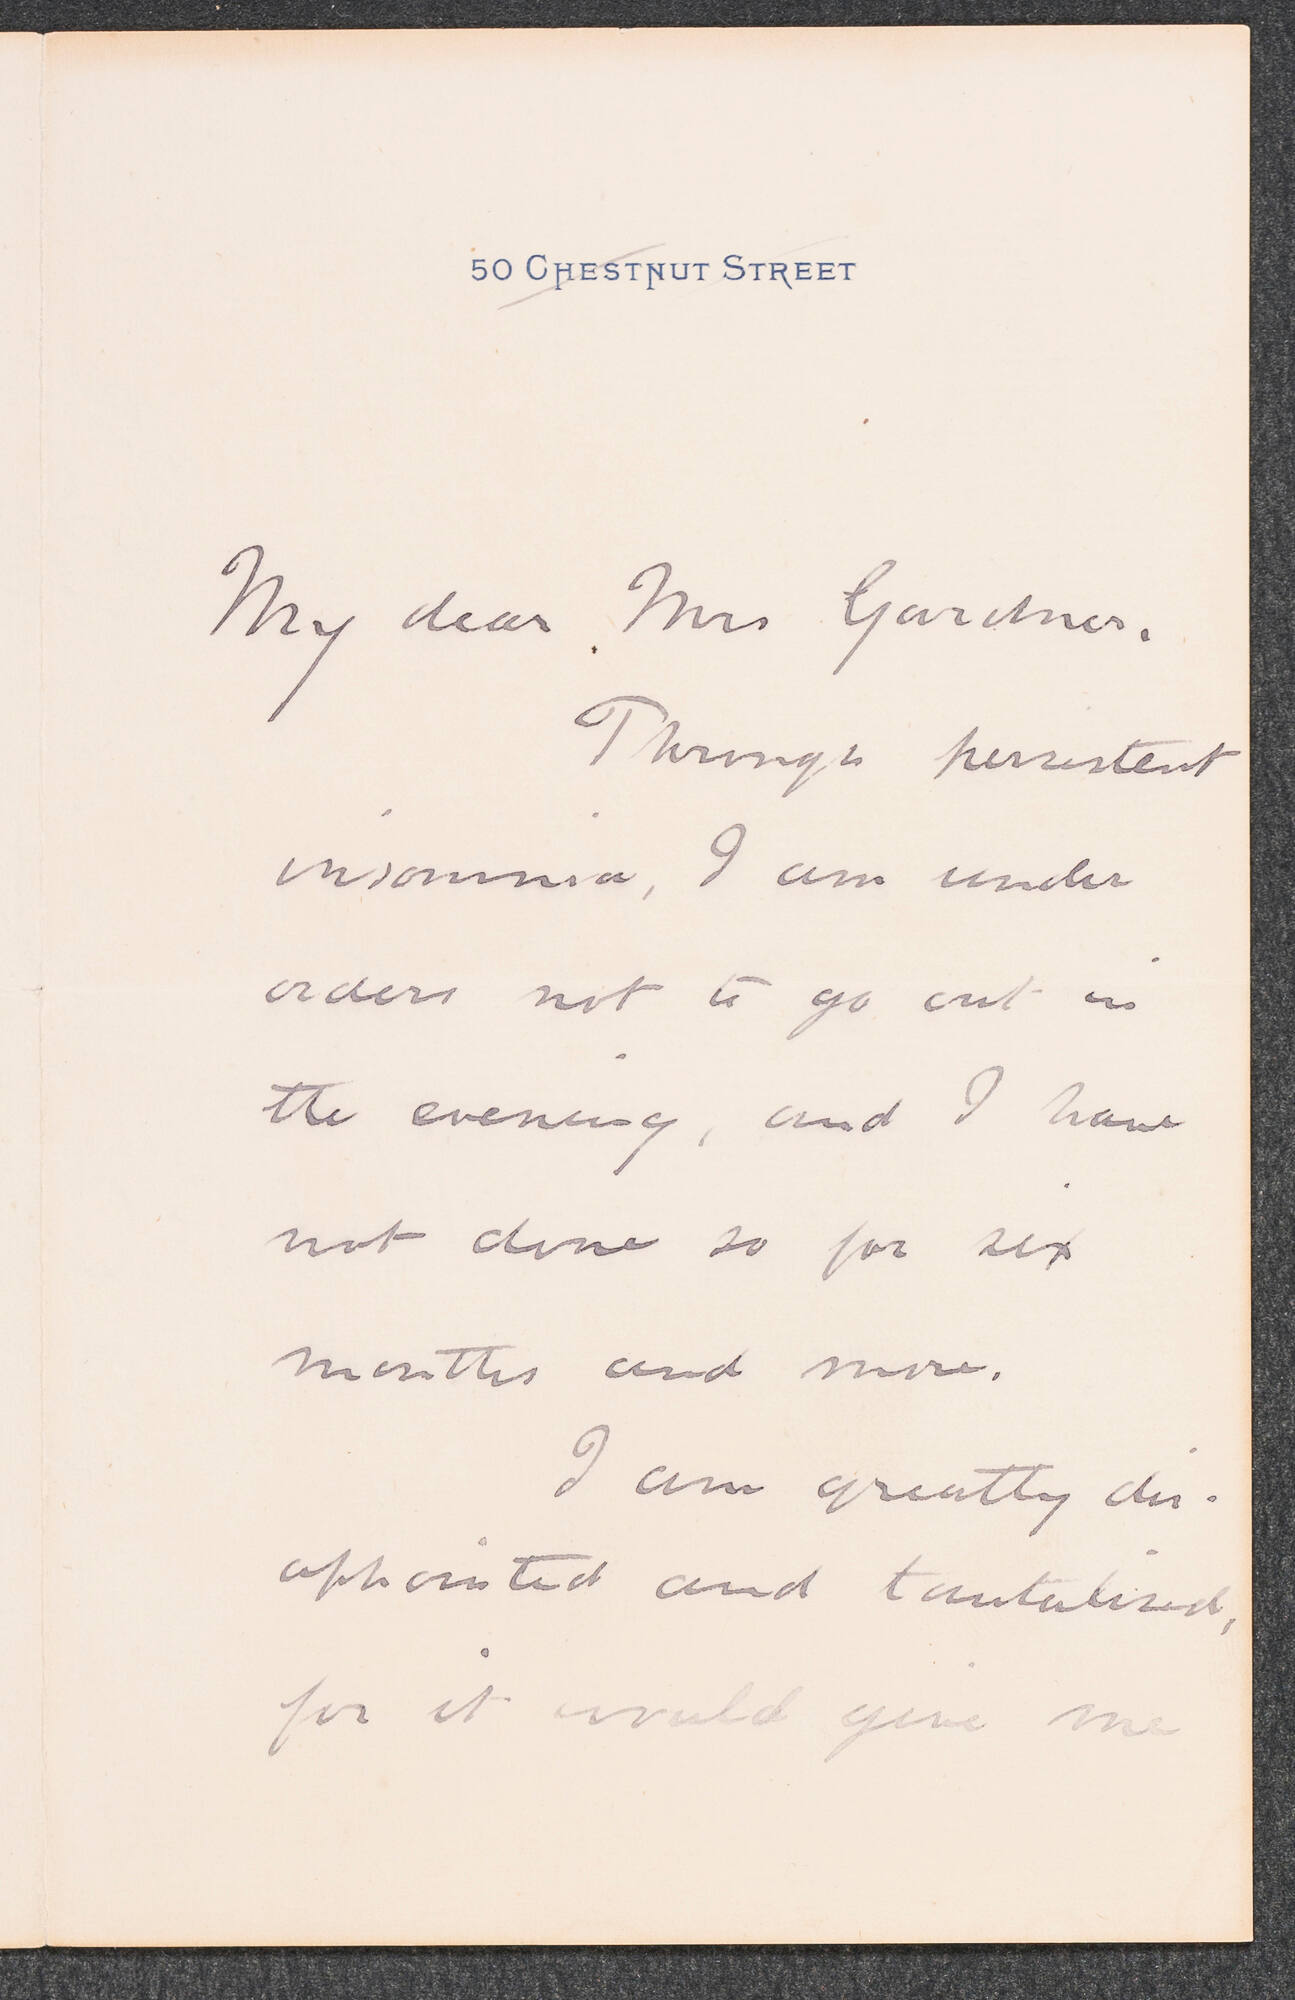 50 CHESTNUT STREET
My dear Mrs Gardner.
Through persistent
insomnia, I am under
orders not to go out in
the evening, and I have
not done so for six
months and more.
I am greatly dis-
appointed and tantalised,
for it would give me